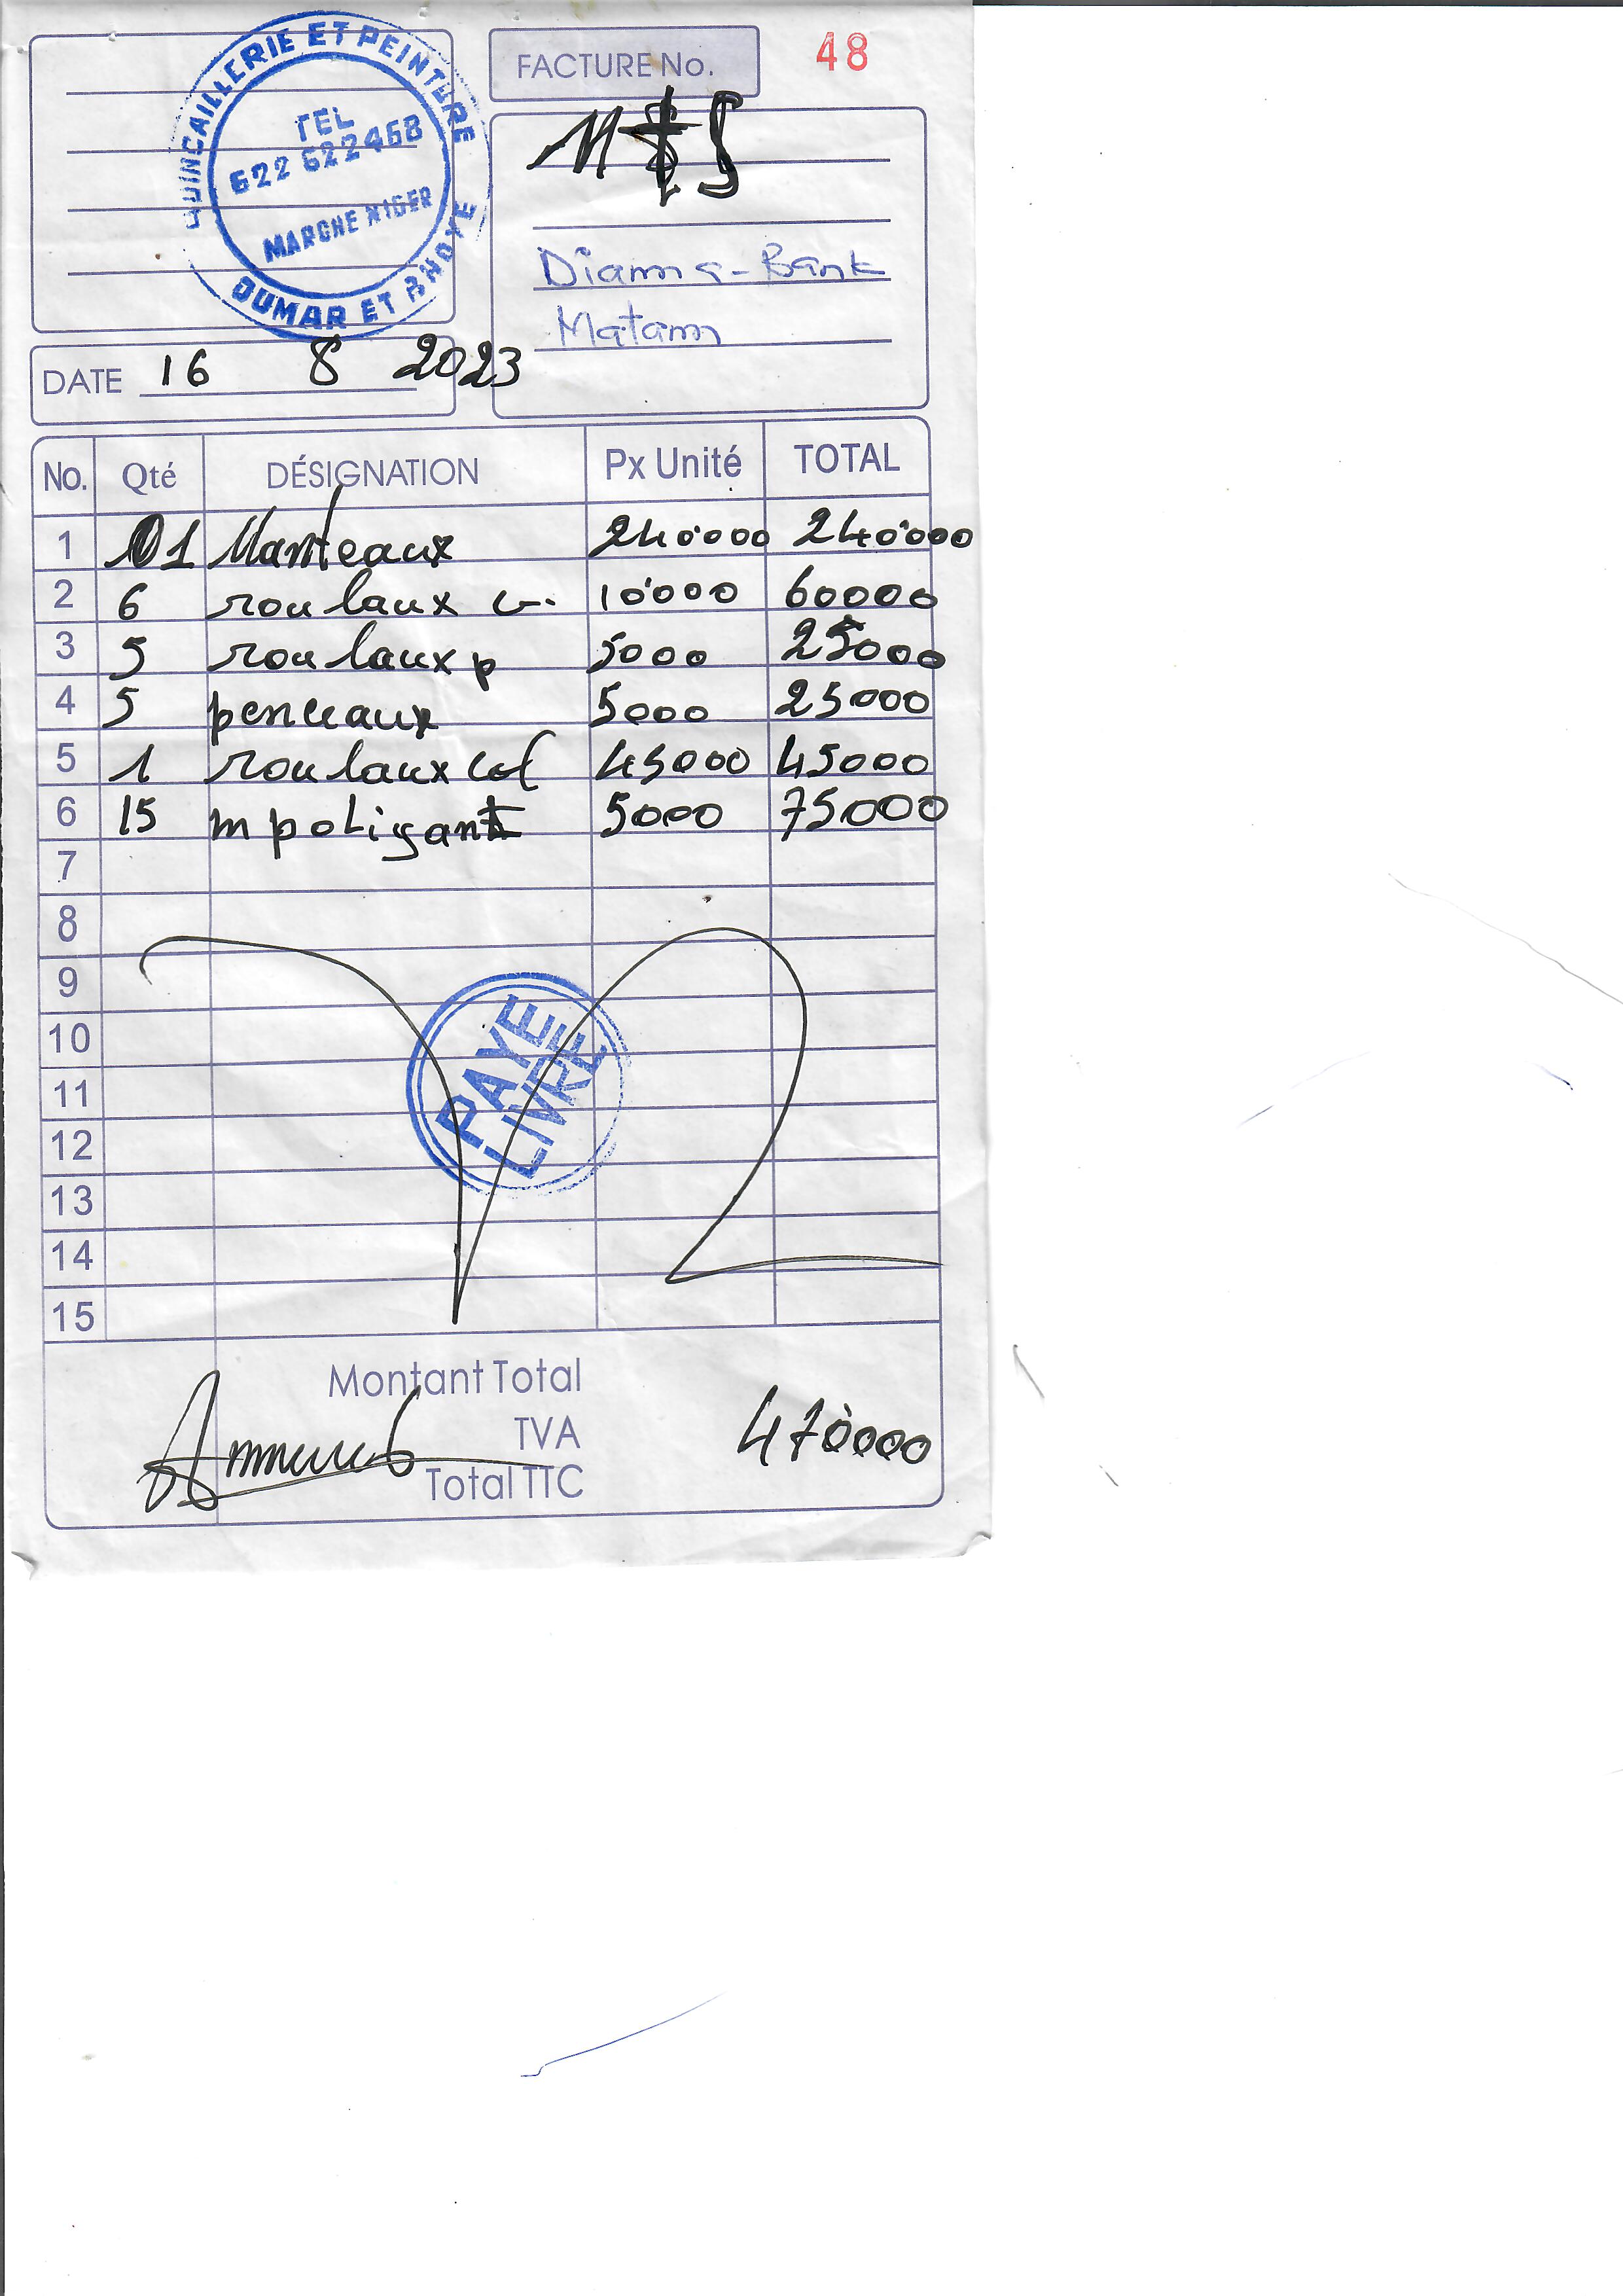 QUINCAILLERIE ET PEINTURE
TEL
622 622468
MARCHE NIGER
OUMAR ET
FACTURE No. 48
Diama-Bank
Matam
DATE 16 8 2023
No. Qté DÉSIGNATION Px Unité TOTAL
1 01 Manteaux 240'000 240'000
2 6 roulaux 10'000 60000
3 5 roulaux p 5000 25000
4 5 penceaux 5000 25000
5 1 roulaux col 45000 45000
6 15 m poligant 5000 75000
7
8
9
10
11
12
13
14
15
PAYE
LIVRE
Montant Total
TVA 470000
Total TTC